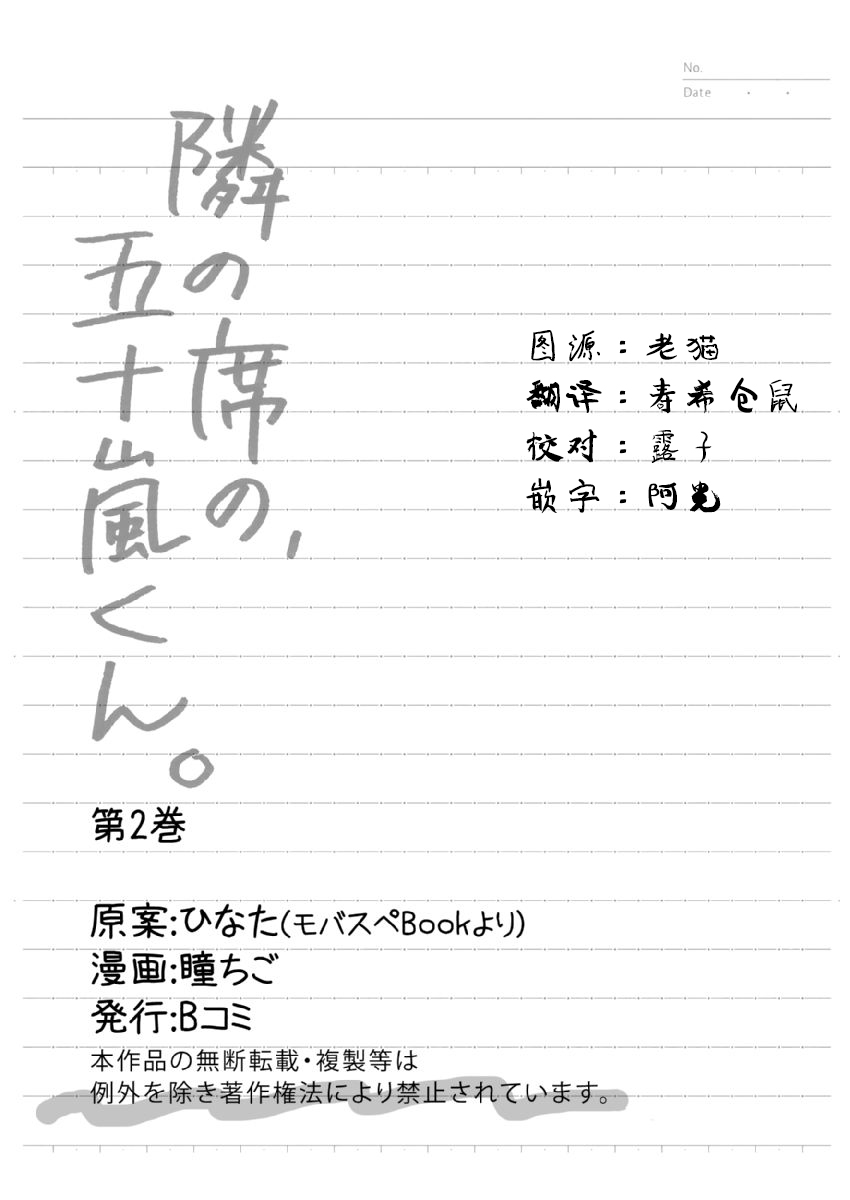 No.
Date ・ ・
隣の席の、
五十嵐くん。
图源：老猫
翻译：寿希仓鼠
校对：露子
嵌字：阿光
第2巻
原案:ひなた(モバスペBookより)
漫画:瞳ちご
発行:Bコミ
本作品の無断転載・複製等は
例外を除き著作権法により禁止されています。